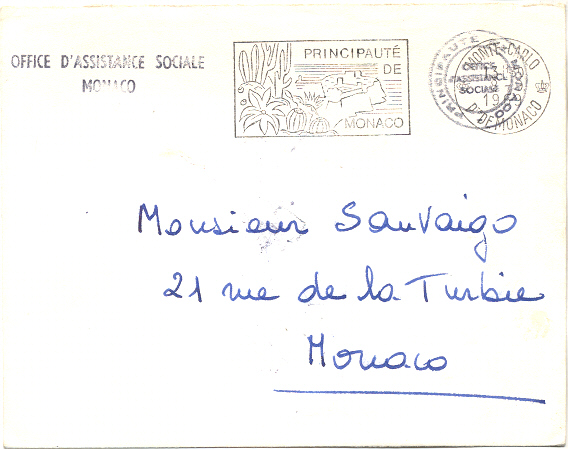 OFFICE D'ASSISTANCE SOCIALE
MONACO
PRINCIPAUTÉ
DE
MONACO
MONTE-CARLO
PRINCIPAUTÉ
OFFICE
ASSISTANCE
SOCIALE
19
MONACO
PTE DE MONACO
Monsieur Sauvaigo
21 rue de la Turbie
Monaco